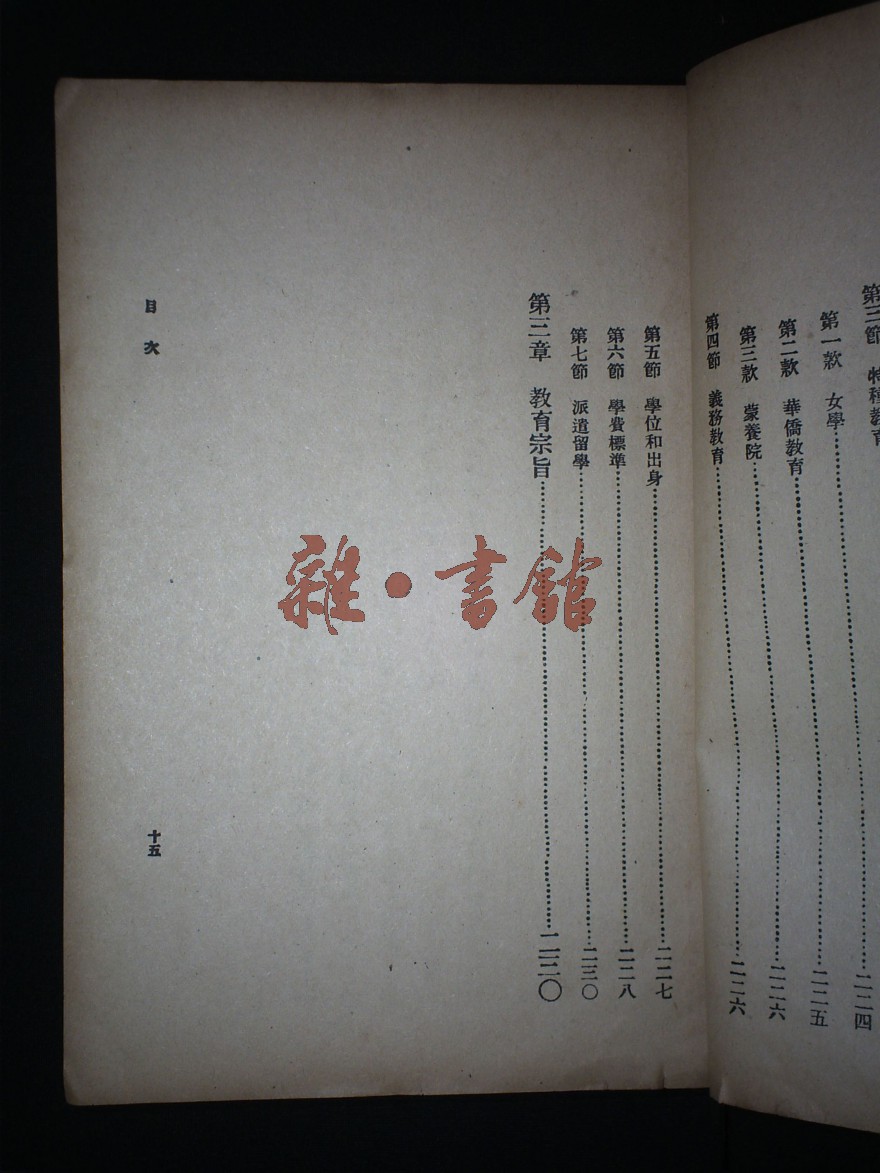 第三節 特種教育
第一款 女學……二二四
第二款 華僑教育……二二五
第三款 蒙養院……二二六
第四節 義務教育……二二六
第五節 學位和出身……二二七
第六節 學費標準……二二八
第七節 派遣留學……二三〇
第三章 教育宗旨……二三〇
目次
十五
雜·書館